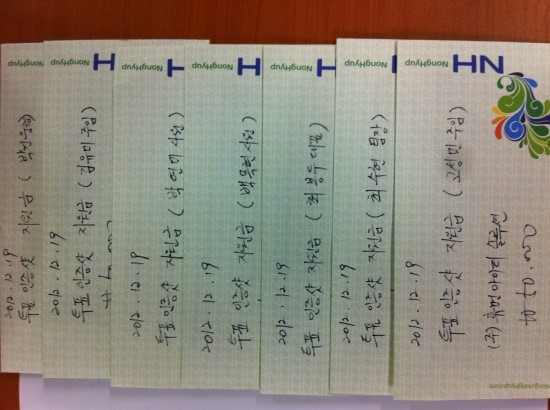 NongHyup
2012.12.19
투표 인증샷 지원금 (
NongHyup
2012.12.19
투표 인증샷 지원금 ( 김유미 주임 )
NongHyup
2012.12.19
투표 인증샷 지원금 ( 박연미 사원 )
NongHyup
2012.12.19
투표 인증샷 지원금 ( 백목현 사원 )
NongHyup
2012.12.19
투표 인증샷 지원금 ( 최봉두 대표 )
NongHyup
2012.12.19
투표 인증샷 지원금 ( 최수현 팀장 )
NH
NongHyup
2012.12.19
투표 인증샷 지원금 ( 고상민 주임 )
(주) 휴먼아이티 솔루션
₩50,000